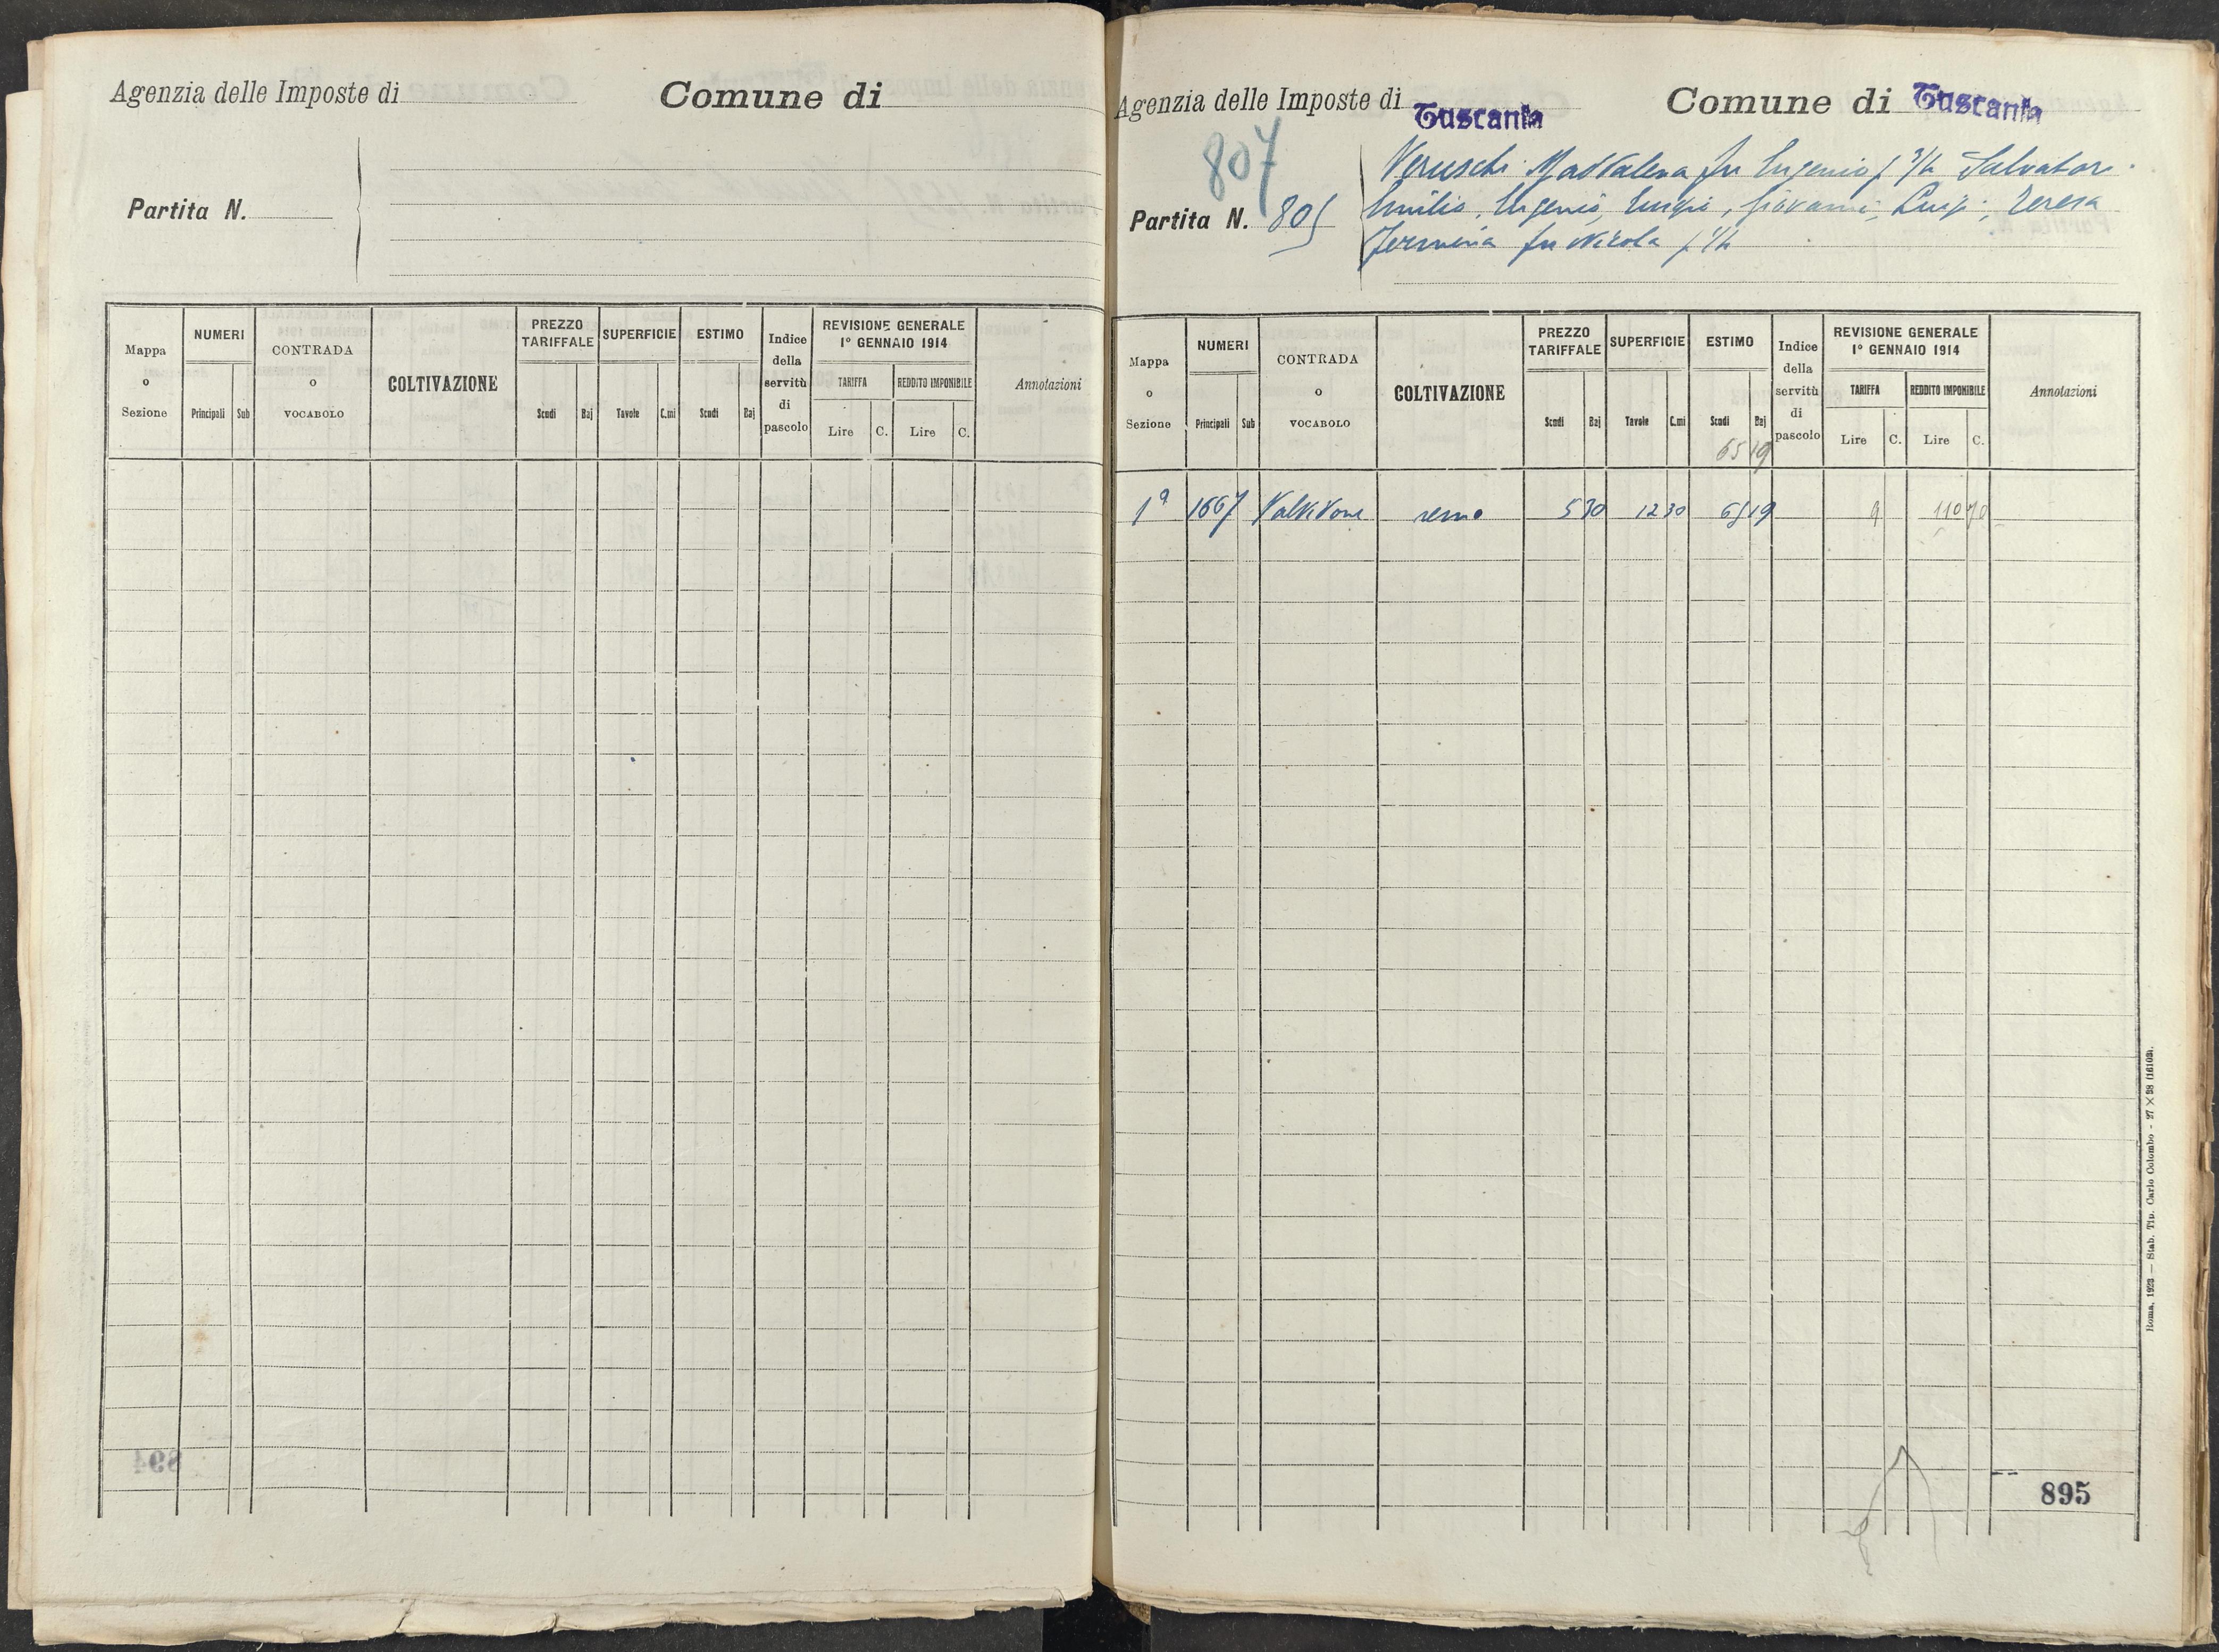 Agenzia delle Imposte di
Comune di
Partita N.
Mappa o Sezione
NUMERI
Principali
Sub
CONTRADA o VOCABOLO
COLTIVAZIONE
PREZZO TARIFFALE
Scudi
Baj
SUPERFICIE
Tavole
C.mi
ESTIMO
Scudi
Baj
Indice della servitù di pascolo
REVISIONE GENERALE
1° GENNAIO 1914
TARIFFA
Lire
C.
REDDITO IMPONIBILE
Lire
C.
Annotazioni
Agenzia delle Imposte di Tuscania
Comune di Tuscania
807
Partita N. 805
Maddalena fu Eugenio p 3/4 Salvatore
Emilio, Eugenio, Giovanni, Luigi, Teresa
fu Nicola p 1/4
Mappa o Sezione
NUMERI
Principali
Sub
CONTRADA o VOCABOLO
COLTIVAZIONE
PREZZO TARIFFALE
Scudi
Baj
SUPERFICIE
Tavole
C.mi
ESTIMO
Scudi
Baj
65 19
Indice della servitù di pascolo
REVISIONE GENERALE
1° GENNAIO 1914
TARIFFA
Lire
C.
REDDITO IMPONIBILE
Lire
C.
Annotazioni
1ª 1667 Valvidone 5 30 12 30 65 19 9 110 70
Roma, 1923 — Stab. Tip. Carlo Colombo - 27 × 38
895